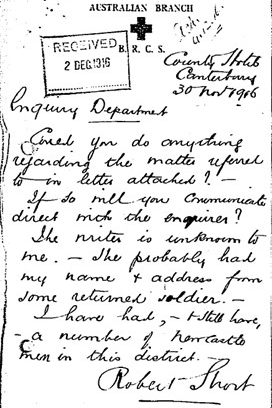 AUSTRALIAN BRANCH
B. R. C. S.
RECEIVED
2 DEC. 1916
County Hotel
Canterbury
30 Nov 1916
Enquiry Department
Could you do anything
regarding the matter referred
to in letter attached? —
If so will you communicate
direct with the enquirer?
The writer is unknown to
me. — She probably had
my name & address from
some returned soldier. —
I have had, — & still have,
— a number of Newcastle
men in this district. —
Robert Short